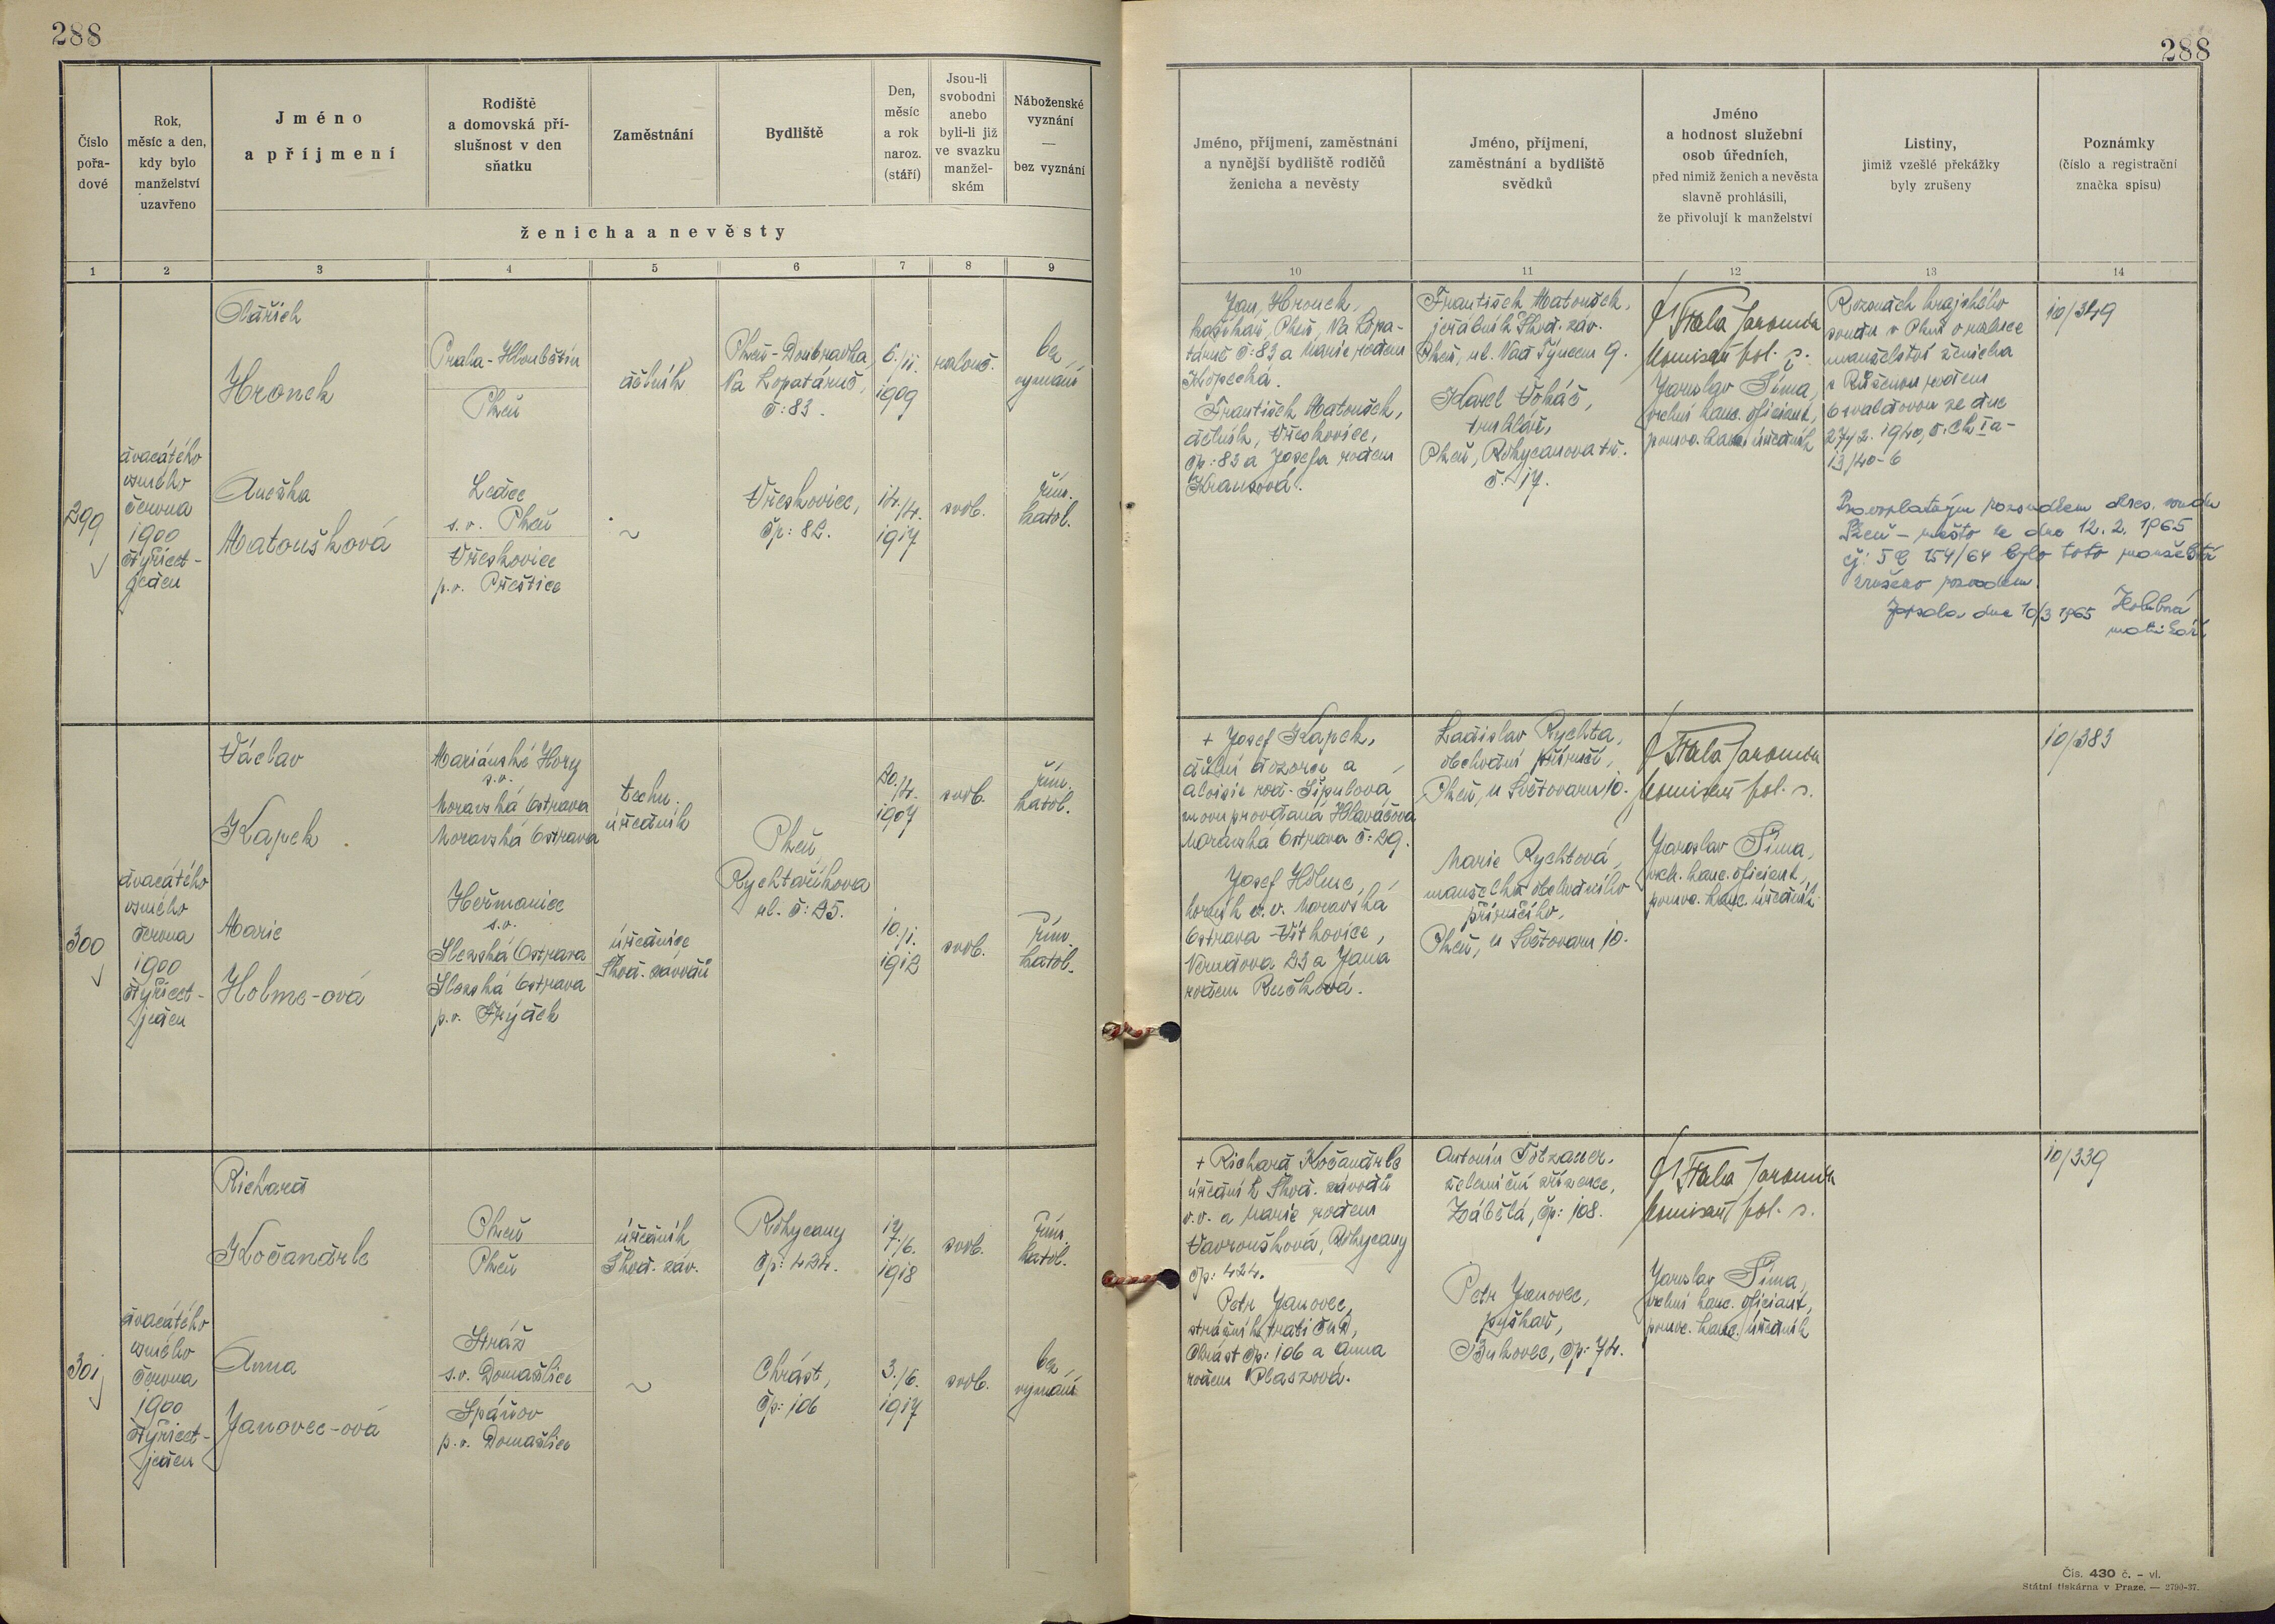 288
288
Číslo
pořa-
dové
Rok,
měsíc a den,
kdy bylo
manželství
uzavřeno
Jméno
a příjmení
Rodiště
a domovská pří-
slušnost v den
sňatku
Zaměstnání
Bydliště
Den,
měsíc
a rok
naroz.
(stáří)
Jsou-li
svobodni
anebo
byli-li již
ve svazku
manžel-
ském
Náboženské
vyznání
—
bez vyznání
ženicha a nevěsty
Jméno, příjmení, zaměstnání
a nynější bydliště rodičů
ženicha a nevěsty
Jméno, příjmení,
zaměstnání a bydliště
svědků
Jméno
a hodnost služební
osob úředních,
před nimiž ženich a nevěsta
slavně prohlásili,
že přivolují k manželství
Listiny,
jimiž vzešlé překážky
byly zrušeny
Poznámky
(číslo a registrační
značka spisu)
1 2 3 4 5 6 7 8 9
10 11 12 13 14
299
dvacátého
osmého
června
1900
čtyřicet-
jeden
Oldřich
Hronek
Praha-Hloubětín
Plzeň
dělník
Plzeň-Doubravka,
Na Lopatárně,
č: 83.
6./11.
1909
rozlouč.
bez
vyznání
Anežka
Matoušková
Ledce
s.o. Plzeň
Vřeskovice
p.o. Přeštice
~
Vřeskovice,
čp: 82.
14./4.
1917
svob.
řím.
katol.
Jan Hronek,
kočí, Plzeň, Na Lopa-
tárně č: 83 a Marie rodem
Kopecká.
František Matoušek,
dělník, Vřeskovice,
čp: 83 a Josefa rodem
Krausová.
František Matoušek,
jeřábník Škod. záv.
Plzeň, ul. Nad Týncem 9.
Karel Voháč,
truhlář,
Plzeň, Rokycanova tř.
č. 17.
Fiala Jaromír
komisař pol. s.
Jaroslav Šíma,
vrchní kanc. oficiant,
pomoc. kanc. úředník
Rozsudek krajského
soudu v Plzni o rozluce
manželství ženicha
s Růženou rodem
Osvaldovou ze dne
27/2. 1940, č. Ck Ia-
13/40-6
Pravoplatným rozsudkem okres. soudu
Plzeň – město ze dne 12. 2. 1965
čj: 5 C 154/64 bylo toto manželství
zrušeno rozvodem.
Zapsala dne 10/3 1965 Holubová
matrikář
10/349
300
dvacátého
osmého
června
1900
čtyřicet-
jeden
Václav
Kapek
Mariánské Hory
s.o.
Moravská Ostrava
Moravská Ostrava
techn.
úředník
Plzeň,
Rychtaříkova
ul. č: 25.
20./4.
1907
svob.
řím.
katol.
Marie
Holme-ová
Heřmanice
s.o.
Slezská Ostrava
Slezská Ostrava
p.o. Frýdek
úřednice
Škod. závodů
10./1.
1912
svob.
řím.
katol.
+ Josef Kapek,
důlní dozorce a
Aloisie roz. Šipulová
znovu provdaná Hlaváčová
Moravská Ostrava č: 29.
Josef Holme,
horník v.v. Moravská
Ostrava-Vítkovice,
Nerudova 23 a Jana
rodem Ručková.
Ladislav Rychta,
obchodní příručí,
Plzeň, u Světovaru 10.
Marie Rychtová,
manželka obchodního
příručího,
Plzeň, u Světovaru 10.
Fiala Jaromír
komisař pol. s.
Jaroslav Šíma,
vrch. kanc. oficiant,
pomoc. kanc. úředník.
10/383
301
dvacátého
osmého
června
1900
čtyřicet-
jeden
Richard
Kočandrle
Plzeň
Plzeň
úředník
Škod. záv.
Rokycany
čp: 424.
17./6.
1918
svob.
řím.
katol.
Anna
Janovec-ová
Stráž
s.o. Domažlice
Spáňov
p.o. Domažlice
~
Chrást,
čp: 106
3./6.
1917
svob.
bez
vyznání
+ Richard Kočandrle
úředník Škod. závodů
v.v. a Marie rodem
Vavroušková, Rokycany
čp: 424.
Petr Janovec,
strážník trati ČMD,
Chrást čp: 106 a Anna
rodem Plaszová.
Antonín
železniční zřízenec,
Zábělá, čp: 108.
Petr Janovec,
puškař,
Bukovec, čp: 74.
Fiala Jaromír
komisař pol. s.
Jaroslav Šíma,
vrchní kanc. oficiant,
pomoc. kanc. úředník
10/339
Čís. 430 č. – vl.
Státní tiskárna v Praze. — 2790-37.